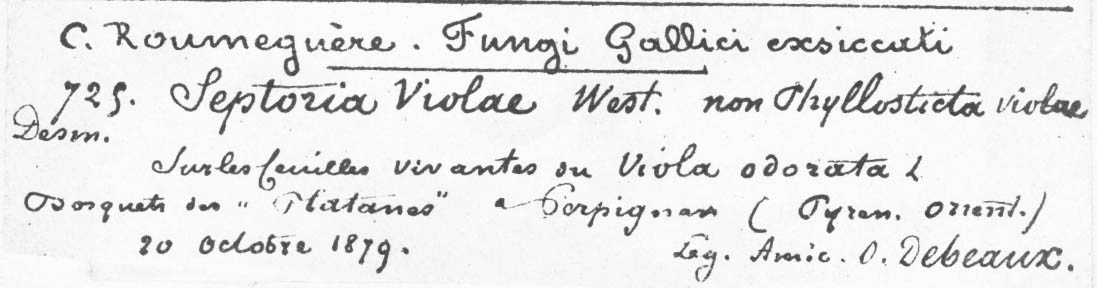 C. Roumeguère. Fungi Gallici exsiccati
725. Septoria Violae West. non Phyllosticta violae
Desm.
Sur les feuilles vivantes du Viola odorata L
Bosquets des "Platanes" a Perpignan (Pyren. Orient.)
20 Octobre 1879. Leg. Amic. O. Debeaux.